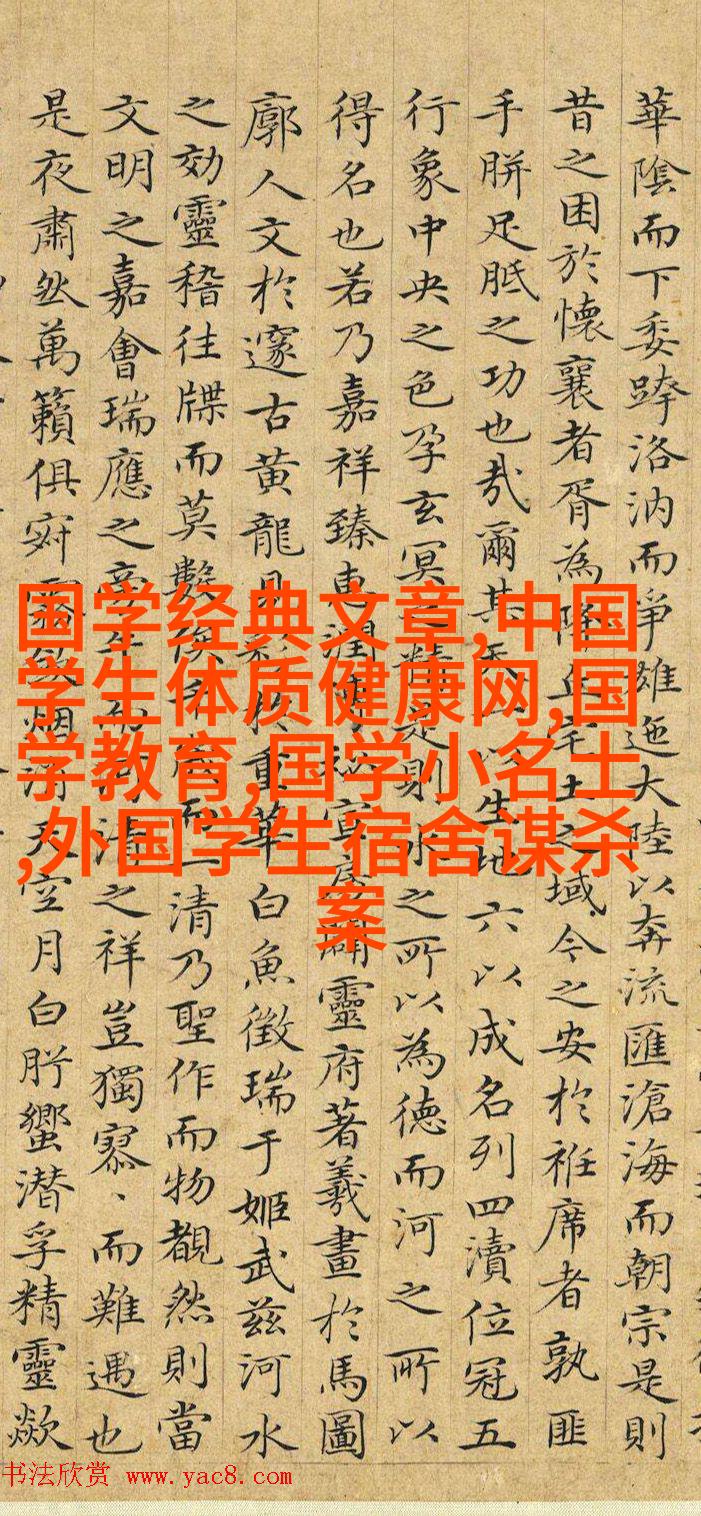 華陰而下委跨洛汭而爭雄迤大陸以奔流匯滄海而朝宗是則
昔之困於懷襄者胥為降丘宅土之域今之安於袵席者孰匪
手胼足胝之功也哉爾其天一以生地六以成名列四瀆位冠五
行象中央之色孕玄冥之精是則水之所以為德而河之所以
得名也若乃嘉祥臻惠潤闢靈府著羲畫於馬圖
廓人文於邃古黃龍見彩於重華白魚徵瑞于姬武茲河水
之効靈稽往牒而莫數俟千歲而一清乃聖作而物覩然則當
文明之嘉會瑞應之生河清之祥豈獨寡、而難遇也
是夜肅然萬籟俱寂斂烟消天空月白肸蠁潛孚精靈歘
国学经典文章,中国
学生体质健康网,国
学教育,国学小名士
,外国学生宿舍谋杀
案
书法欣赏 www.yac8.com